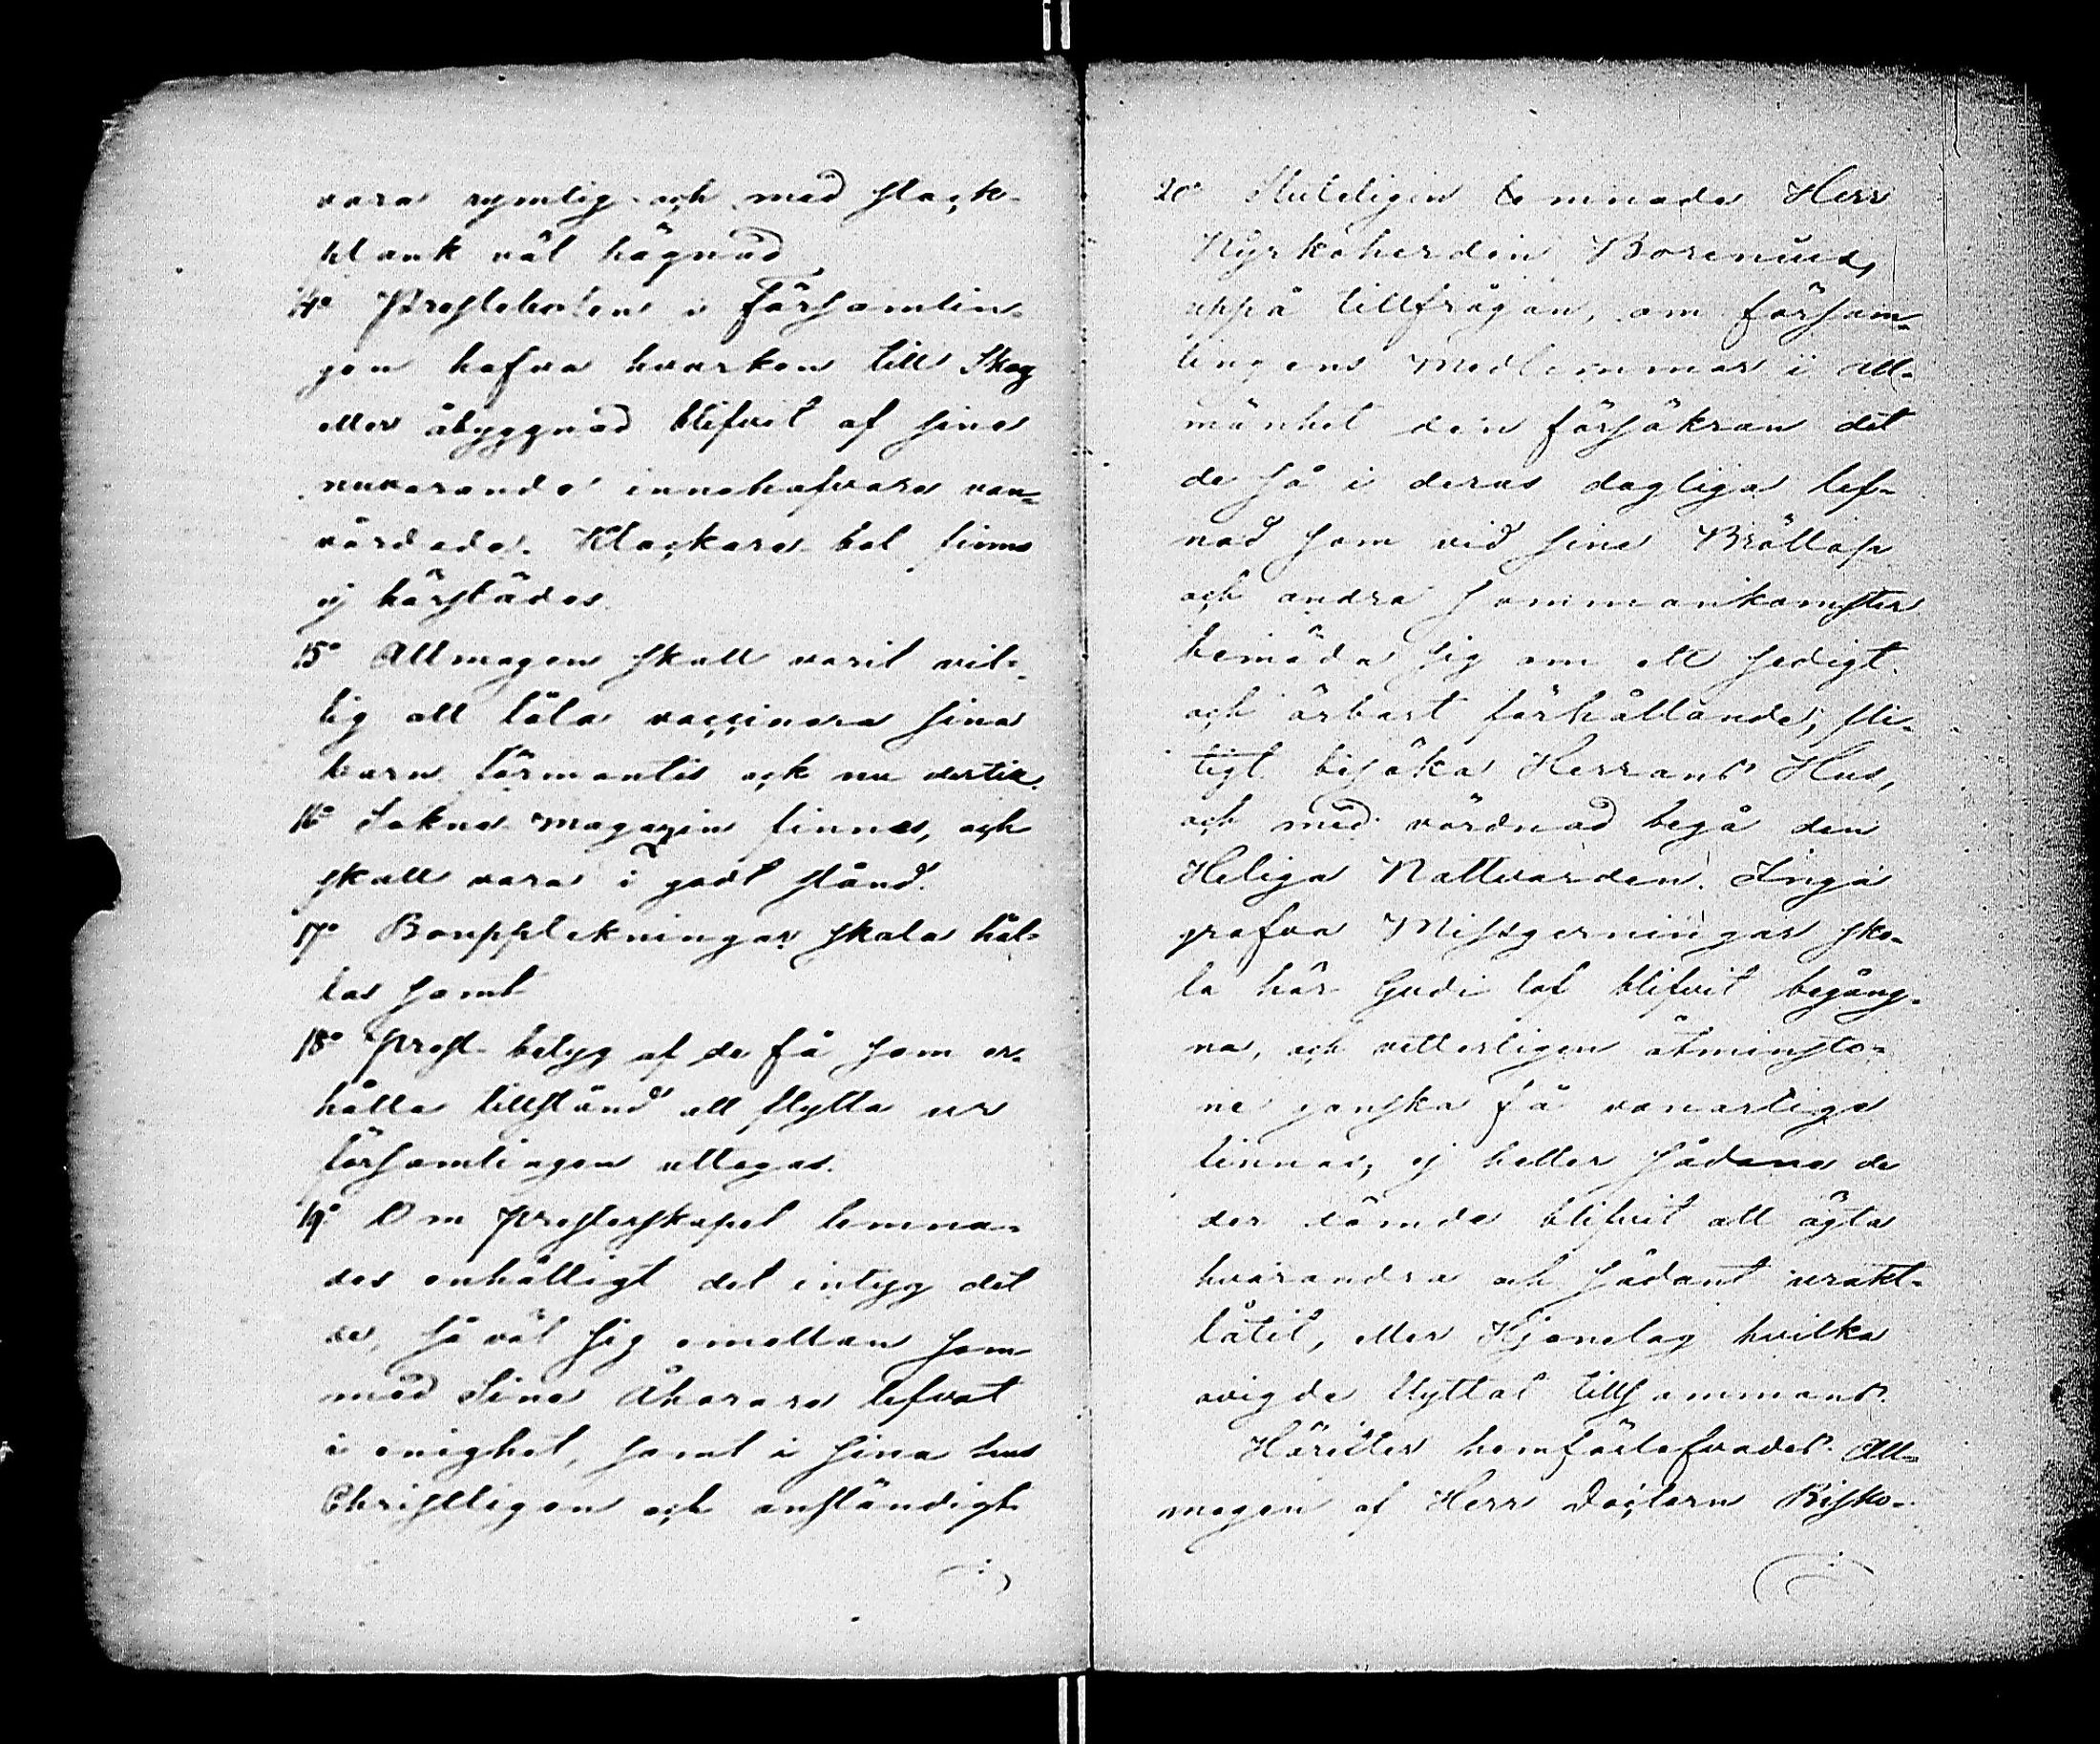 vara rymlig och med stack-
plank väl hägnad
14o Prestebolen i församlin-
gen hafva hvarken till Skog
eller åbyggnad blifvit af sine
nuvarande innehafvare van-
vårdade. Klockare bol finns
ej härstädes.
15o Allmogen skall varit vil-
lig att låta vaccinera sina
barn förmantes ock nu dertill.
16o Sokne magazin finnes, och
skall vara i godt stånd.
17o Bonpplekningar skola hål-
las samt
18o Prest betyg af de få som er-
hålla tillstånd att flytta ur
församlingen uttagas.
19o Om Presterskapet lemna-
des enhälligt det intyg det
de, så väl sig emellan som
med Sina Åhörare lefvat
i enighet, samt i sina hus
Christligen och anständigt
20o Sluteligen lemnade Herr
Kyrkoherden Borenius,
uppå tillfrågan, om försam-
lingens Medlemmar i all-
mänhet den försäkran det
de så i deras dagliga lef-
nad som vid sina Bröllop
och andra sammankomster
bemöda sig om ett sedigt
och ärbart förhållande, fli-
tigt besöka Herrans Hus,
och med vördnad begå den
Heliga Nattvarden. Inga
grofva Missgerningar sko-
la här Gudi lof blifvit begång-
na, och vitterligen åtminsto-
ne ganska få vanartige
finnas, ej heller sådane de
der dömde blifvit att ägta
hvarandra och sådant urakt-
låtit, eller Hjonelag hvilka
ovigde flyttat tillsammans.
Härefter hemförlofvades All-
mogen af Herr Doctorn Bisko-